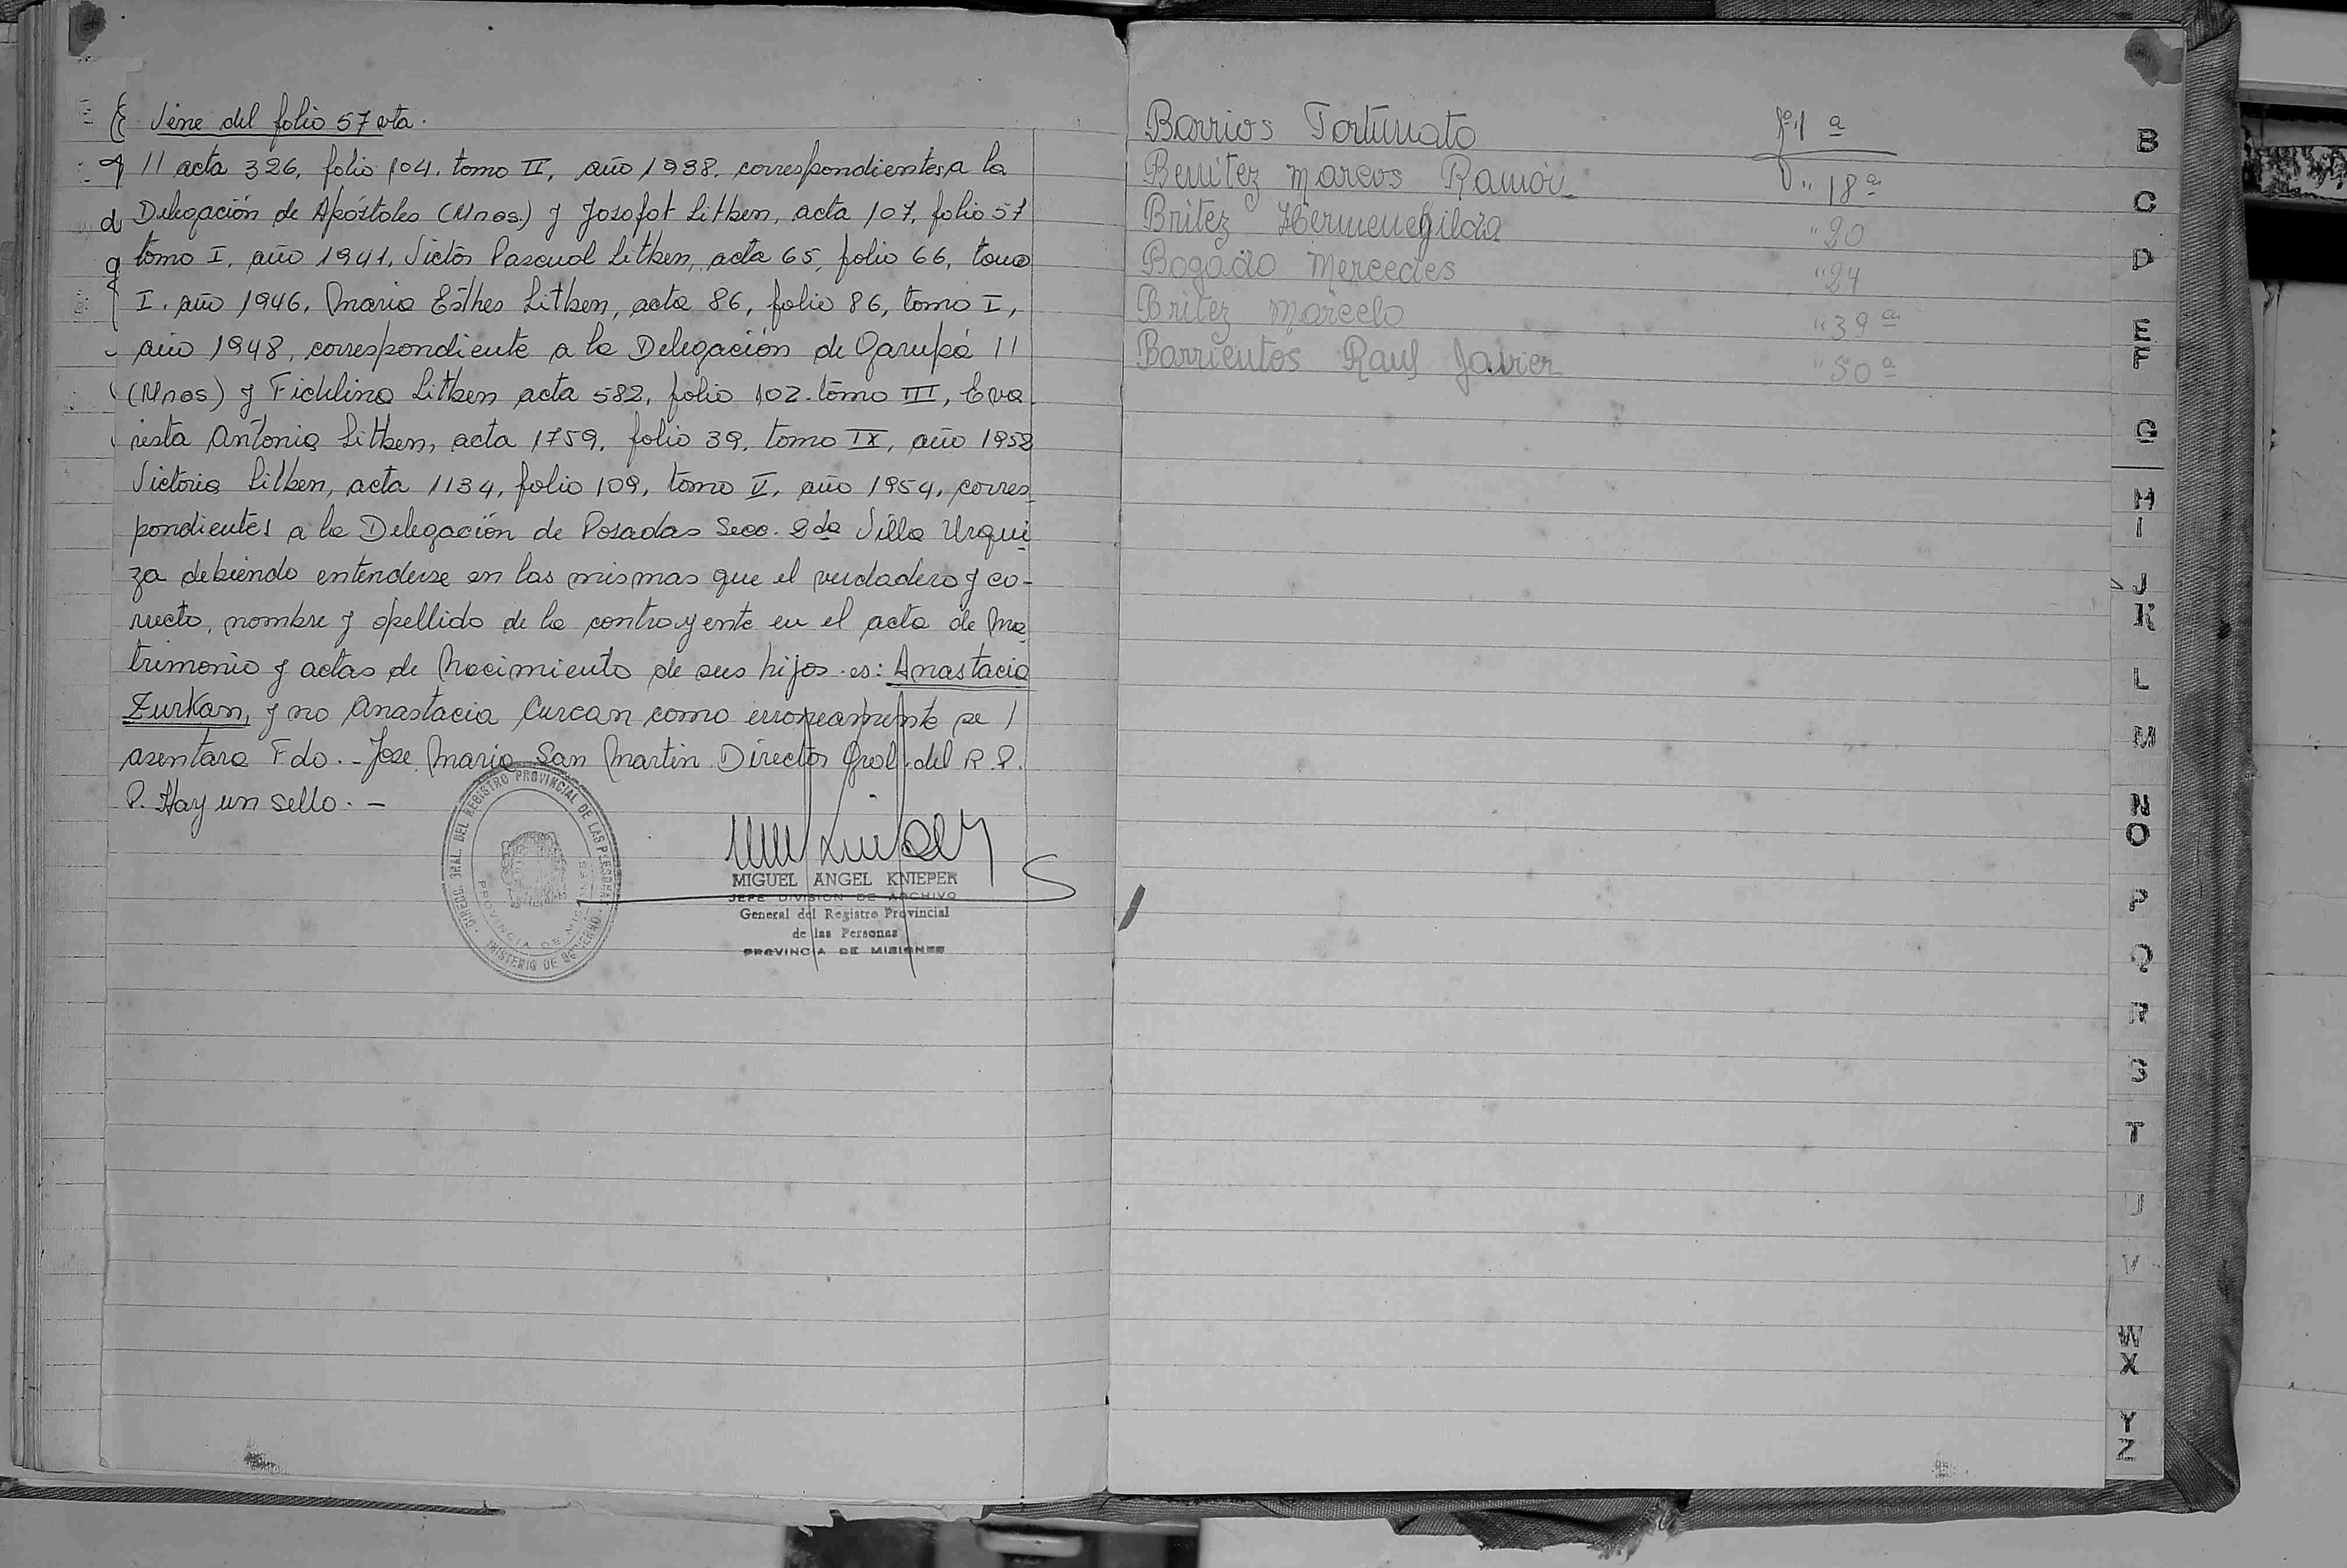 Viene del folio 57 vta.
11 acta 326, folio 104, tomo II, año 1938, correspondientes a la
Delegación de Apóstoles (Mnes.) y Josofot Litken, acta 107, folio 57
tomo I, año 1941, Victor Pascual Litken, acta 65, folio 66, tomo
I. año 1946, Maria Esther Litken, acta 86, folio 86, tomo I,
año 1948, correspondiente a la Delegación de Garupá 11
(Mnes) y Fidelina Litken acta 582, folio 102 tomo III, Eva
rista Antonia Litken, acta 1759, folio 39, tomo IX, año 1952
Victoria Litken, acta 1134, folio 109, tomo V, año 1954, corres
pondientes a la Delegación de Posadas Secc. 2da Villa Urqui
za debiendo entenderse en las mismas que el verdadero y co-
rrecto, nombre y apellido de la contrayente en el acta de Ma
trimonio y actas de Nacimiento de sus hijos es: Anastacia
Zurkan, y no Anastacia Curcan como erroneamente se /
asentara Fdo.- Jose Maria San Martin Director Gral. del R.P.
P. Hay un sello. -
DIRECC. GRAL. DEL REGISTRO PROVINCIAL DE LAS PERSONAS
PROVINCIA DE MISIONES
MINISTERIO DE GOBIERNO
MIGUEL ANGEL KNIEPER
JEFE DIVISION DE ARCHIVO
General del Registro Provincial
de las Personas
PROVINCIA DE MISIONES
Barrios Fortunato fº 1 a
Benitez Marcos Ramón " 18 a
Britez Hermenegilda " 20
Bogado Mercedes " 24
Britez Marcelo " 39 a
Barrientos Raul Javier " 50 a
B
C
D
E
F
G
H
I
J
K
L
M
N
O
P
Q
R
S
T
U
V
W
X
Y
Z